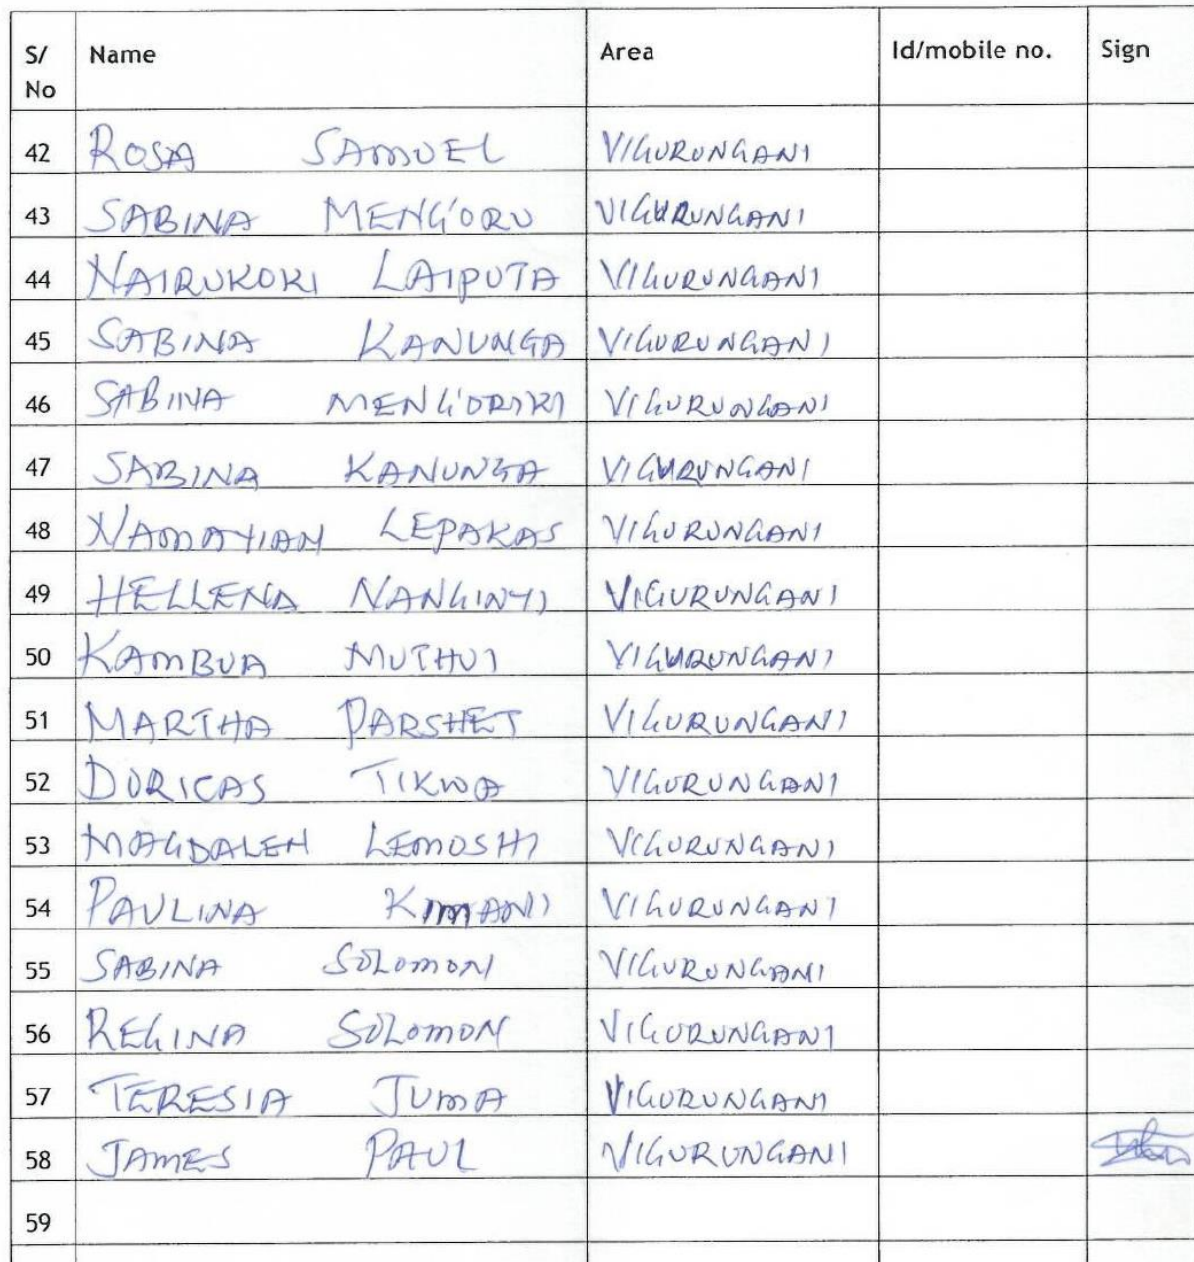 S/ No Name Area Id/mobile no. Sign
42 ROSA SAMUEL VIGURUNGANI
43 SABINA MENG'ORU VIGURUNGANI
44 NAIRUKOKI LAIPUTA VIGURUNGANI
45 SABINA KANUNGA VIGURUNGANI
46 SABINA MENG'ORIKI VIGURUNGANI
47 SABINA KANUNGA VIGURUNGANI
48 NAMAYIAN LEPAKAS VIGURUNGANI
49 HELLENA NANGINYI VIGURUNGANI
50 KAMBUA MUTHUI VIGURUNGANI
51 MARTHA PARSHET VIGURUNGANI
52 DORICAS TIKWA VIGURUNGANI
53 MAGDALEN LEMOSHI VIGURUNGANI
54 PAULINA KIMANI VIGURUNGANI
55 SABINA SOLOMON VIGURUNGANI
56 REGINA SOLOMON VIGURUNGANI
57 TERESIA JUMA VIGURUNGANI
58 JAMES PAUL VIGURUNGANI
59